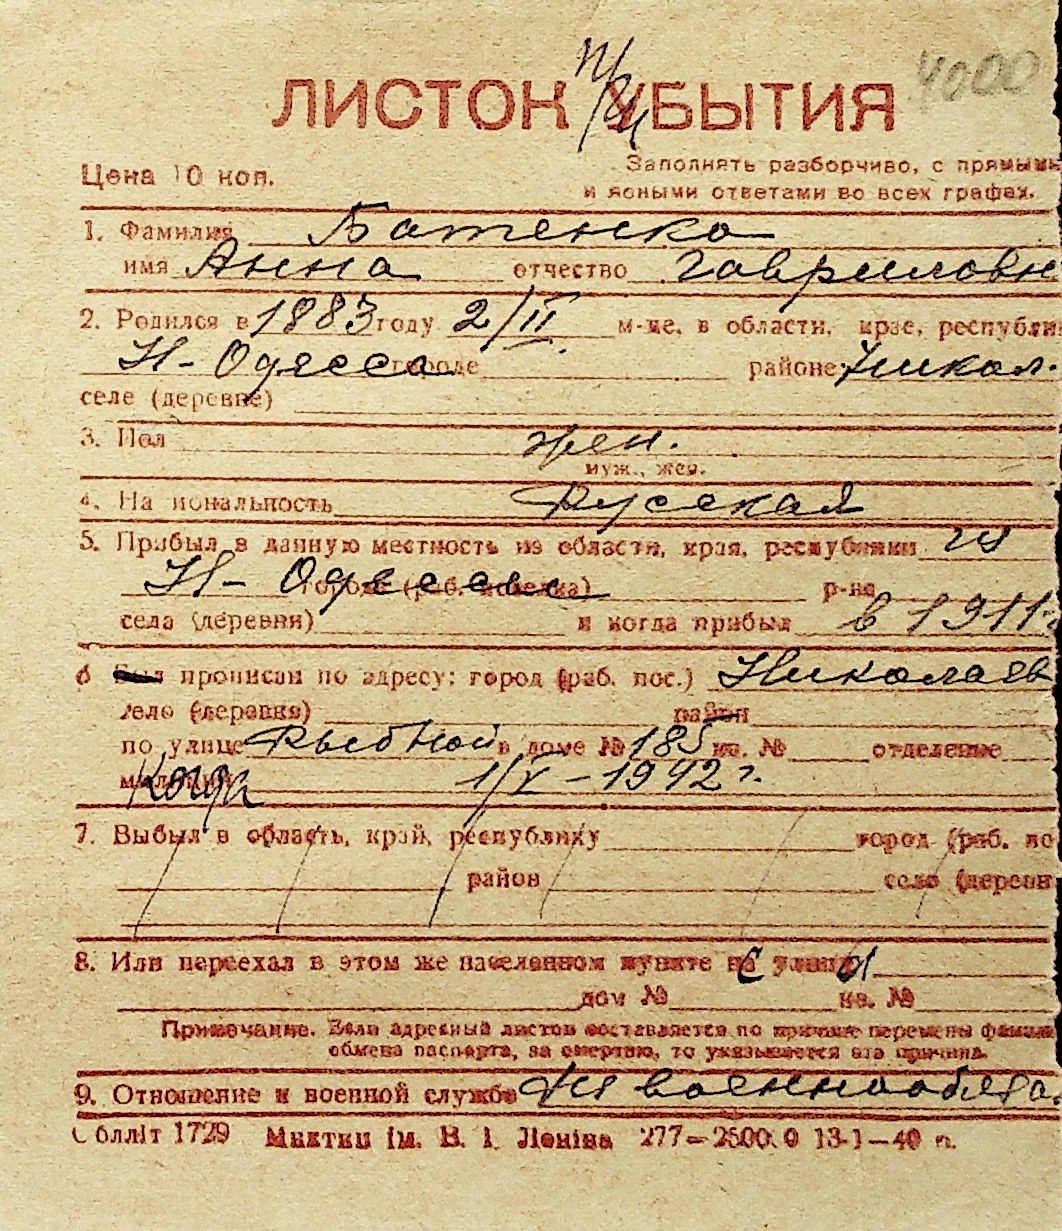 4000
ЛИСТОК УБЫТИЯ
Цена 10 коп.
Заполнять разборчиво, с прямыми
и ясными ответами во всех графах.
1. Фамилия Батенко
имя Анна отчество Гавриловн
2. Родился в 1883 году 2/II м-це, в области, крае, республи
Н-Одесса городе районе Никол.
селе (деревне)
3. Пол жен.
муж., жен.
4. Национальность Русская
5. Прибыл в данную местность из области, края, республики из
Н-Одессы города (раб. поселка) р-на
села (деревни) и когда прибыл в 1911 г
6 Был прописан по адресу: город (раб. пос.) Николаев
село (деревня) район
по улице Рыбной в доме № 185 кв. № отделение
милиции Когда 1/V-1942 г.
7. Выбыл в область, край, республику город (раб. по
район село (деревн
8. Или переехал в этом же населенном пункте на улицу
дом № кв. №
Примечание. Если адресный листок составляется по причине перемены фамил
обмена паспорта, за смертью, то указывается эта причина.
9. Отношение к военной службе не военнообяза
Облліт 1729 Миктип ім. В. І. Леніна 277—2500.0 13-1—40 п.